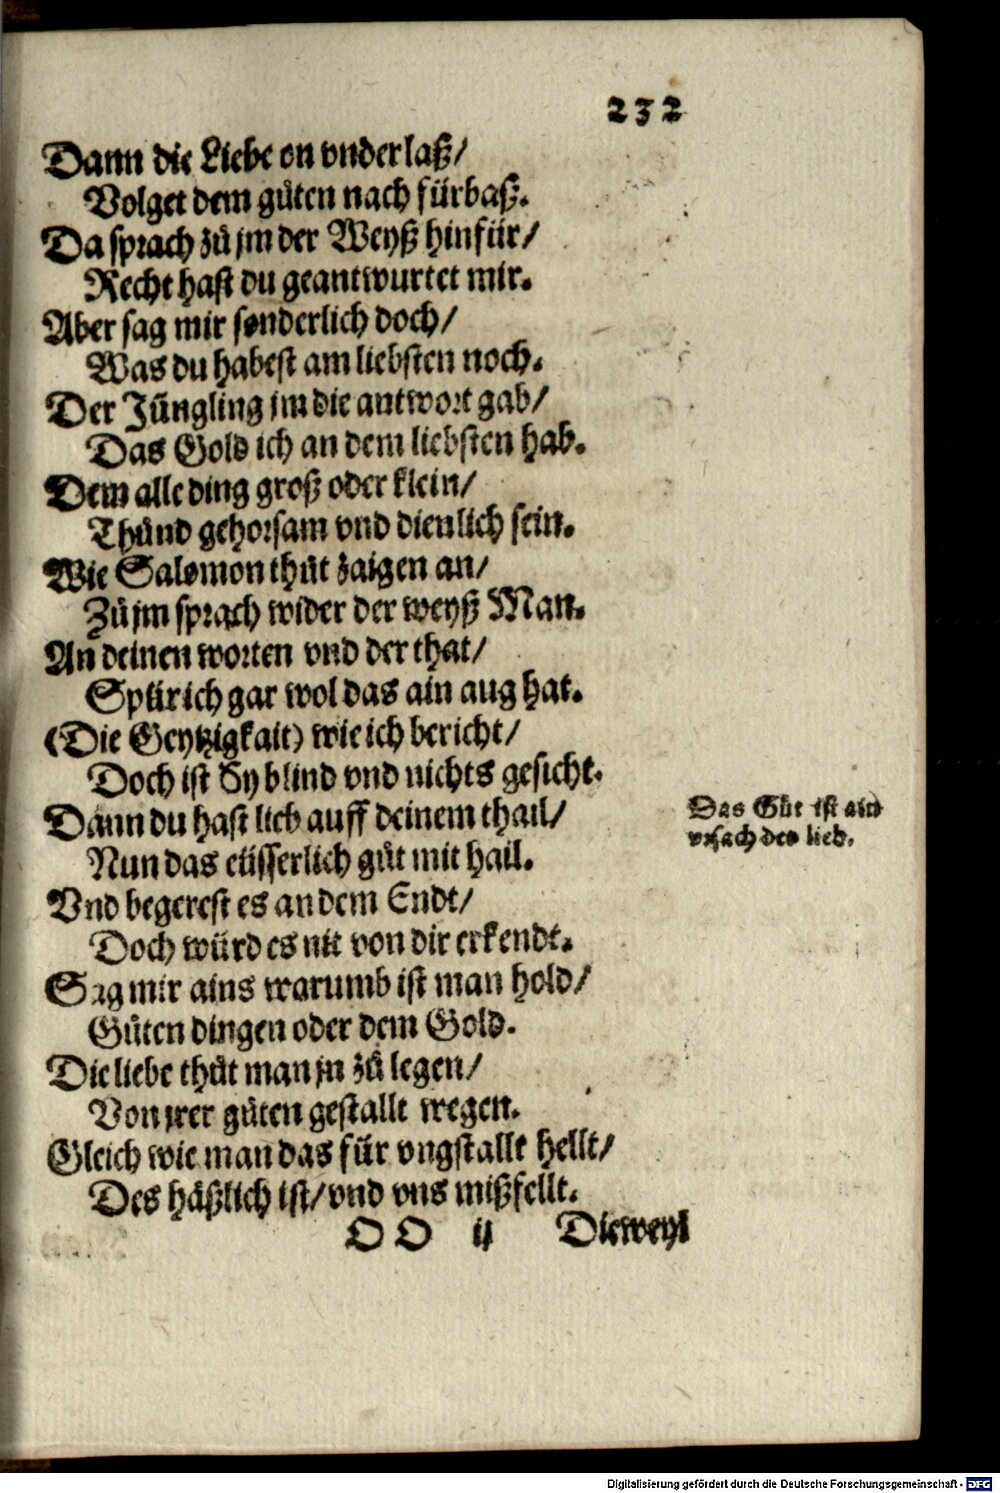 232
Dann die Liebe on vnderlaß/
Volget dem gůten nach fürbaß.
Da sprach zů jm der Weyß hinfür/
Recht hast du geantwurtet mir.
Aber sag mir sonderlich doch/
Was du habest am liebsten noch.
Der Jüngling jm die antwort gab/
Das Gold ich an dem liebsten hab.
Dem alle ding groß oder klein/
Thůnd gehorsam vnd dienlich sein.
Wie Salomon thůt zaigen an/
Zů jm sprach wider der weyß Man.
An deinen worten vnd der that/
Spür ich gar wol das ain aug hat.
(Die Geytzigkait) wie ich bericht/
Doch ist Sy blind vnd nichts gesicht.
Dann du hast lieb auff deinem thail/
Nun das eüsserlich gůt mit hail.
Vnd begerest es an dem Endt/
Doch würd es nit von dir erkendt.
Das Gůt ist ain
vrsach der lieb.
Sag mir ains warumb ist man hold/
Gůten dingen oder dem Gold.
Die liebe thůt man jn zů legen/
Von jrer gůten gestallt wegen.
Gleich wie man das für vngstallt hellt/
Des häßlich ist/ vnd vns mißfellt.
OO ij Dieweyl
Digitalisierung gefördert durch die Deutsche Forschungsgemeinschaft - DFG